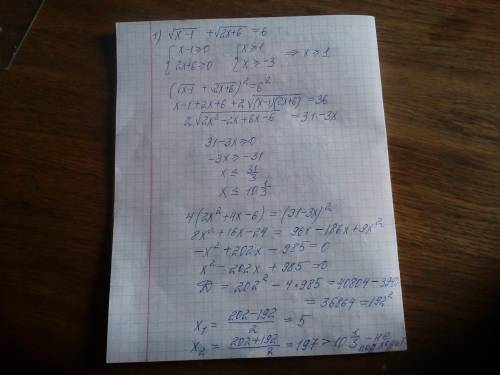 1) √x-1 + √2x+6 = 6
{x-1≥0 {x≥1 ⇒ x≥1
{2x+6≥0 {x≥-3
(√x-1 + √2x+6)² = 6²
x-1+2x+6+2√(x-1)(2x+6) = 36
2√2x²-2x+6x-6 = 31-3x
31-3x≥0
-3x≥-31
x≤ 31/3
x≤ 10 1/3
4(2x²+4x-6) = (31-3x)²
8x²+16x-24 = 96x-186x+9x²
-x²+202x-985=0
x²-202x+985=0
D = 202²-4·985 = 40804-3940
= 36864 = 192²
x₁ = 202-192/2 = 5
x₂ = 202+192/2 = 197 > 10 1/3 - не